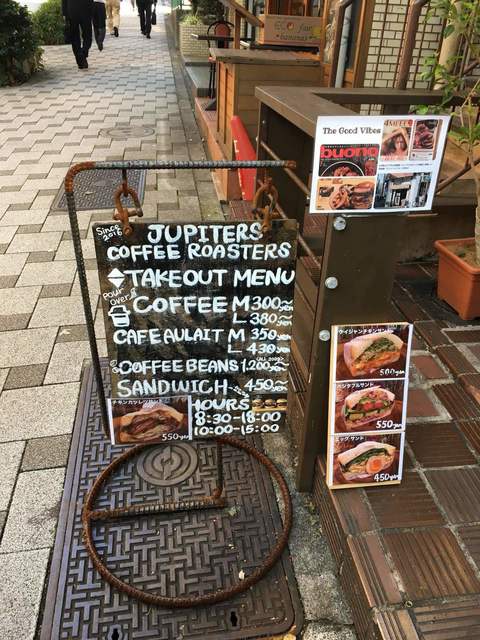 ECO fair
bananas
The Good Vibes
buono
Since 2016
JUPITERS
COFFEE ROASTERS
TAKEOUT MENU
Pour over
COFFEE M 300~yen
L 380~yen
CAFE AULAIT M 350yen
L 430yen
COFFEE BEANS 1,200~yen
SANDWICH 450~yen
HOURS
8:30-18:00
10:00-15:00
チキンカツレツサンド
550yen
ウイジャンチキンサンド
500yen
ベジタブルサンド
550yen
エッグ サンド
450yen